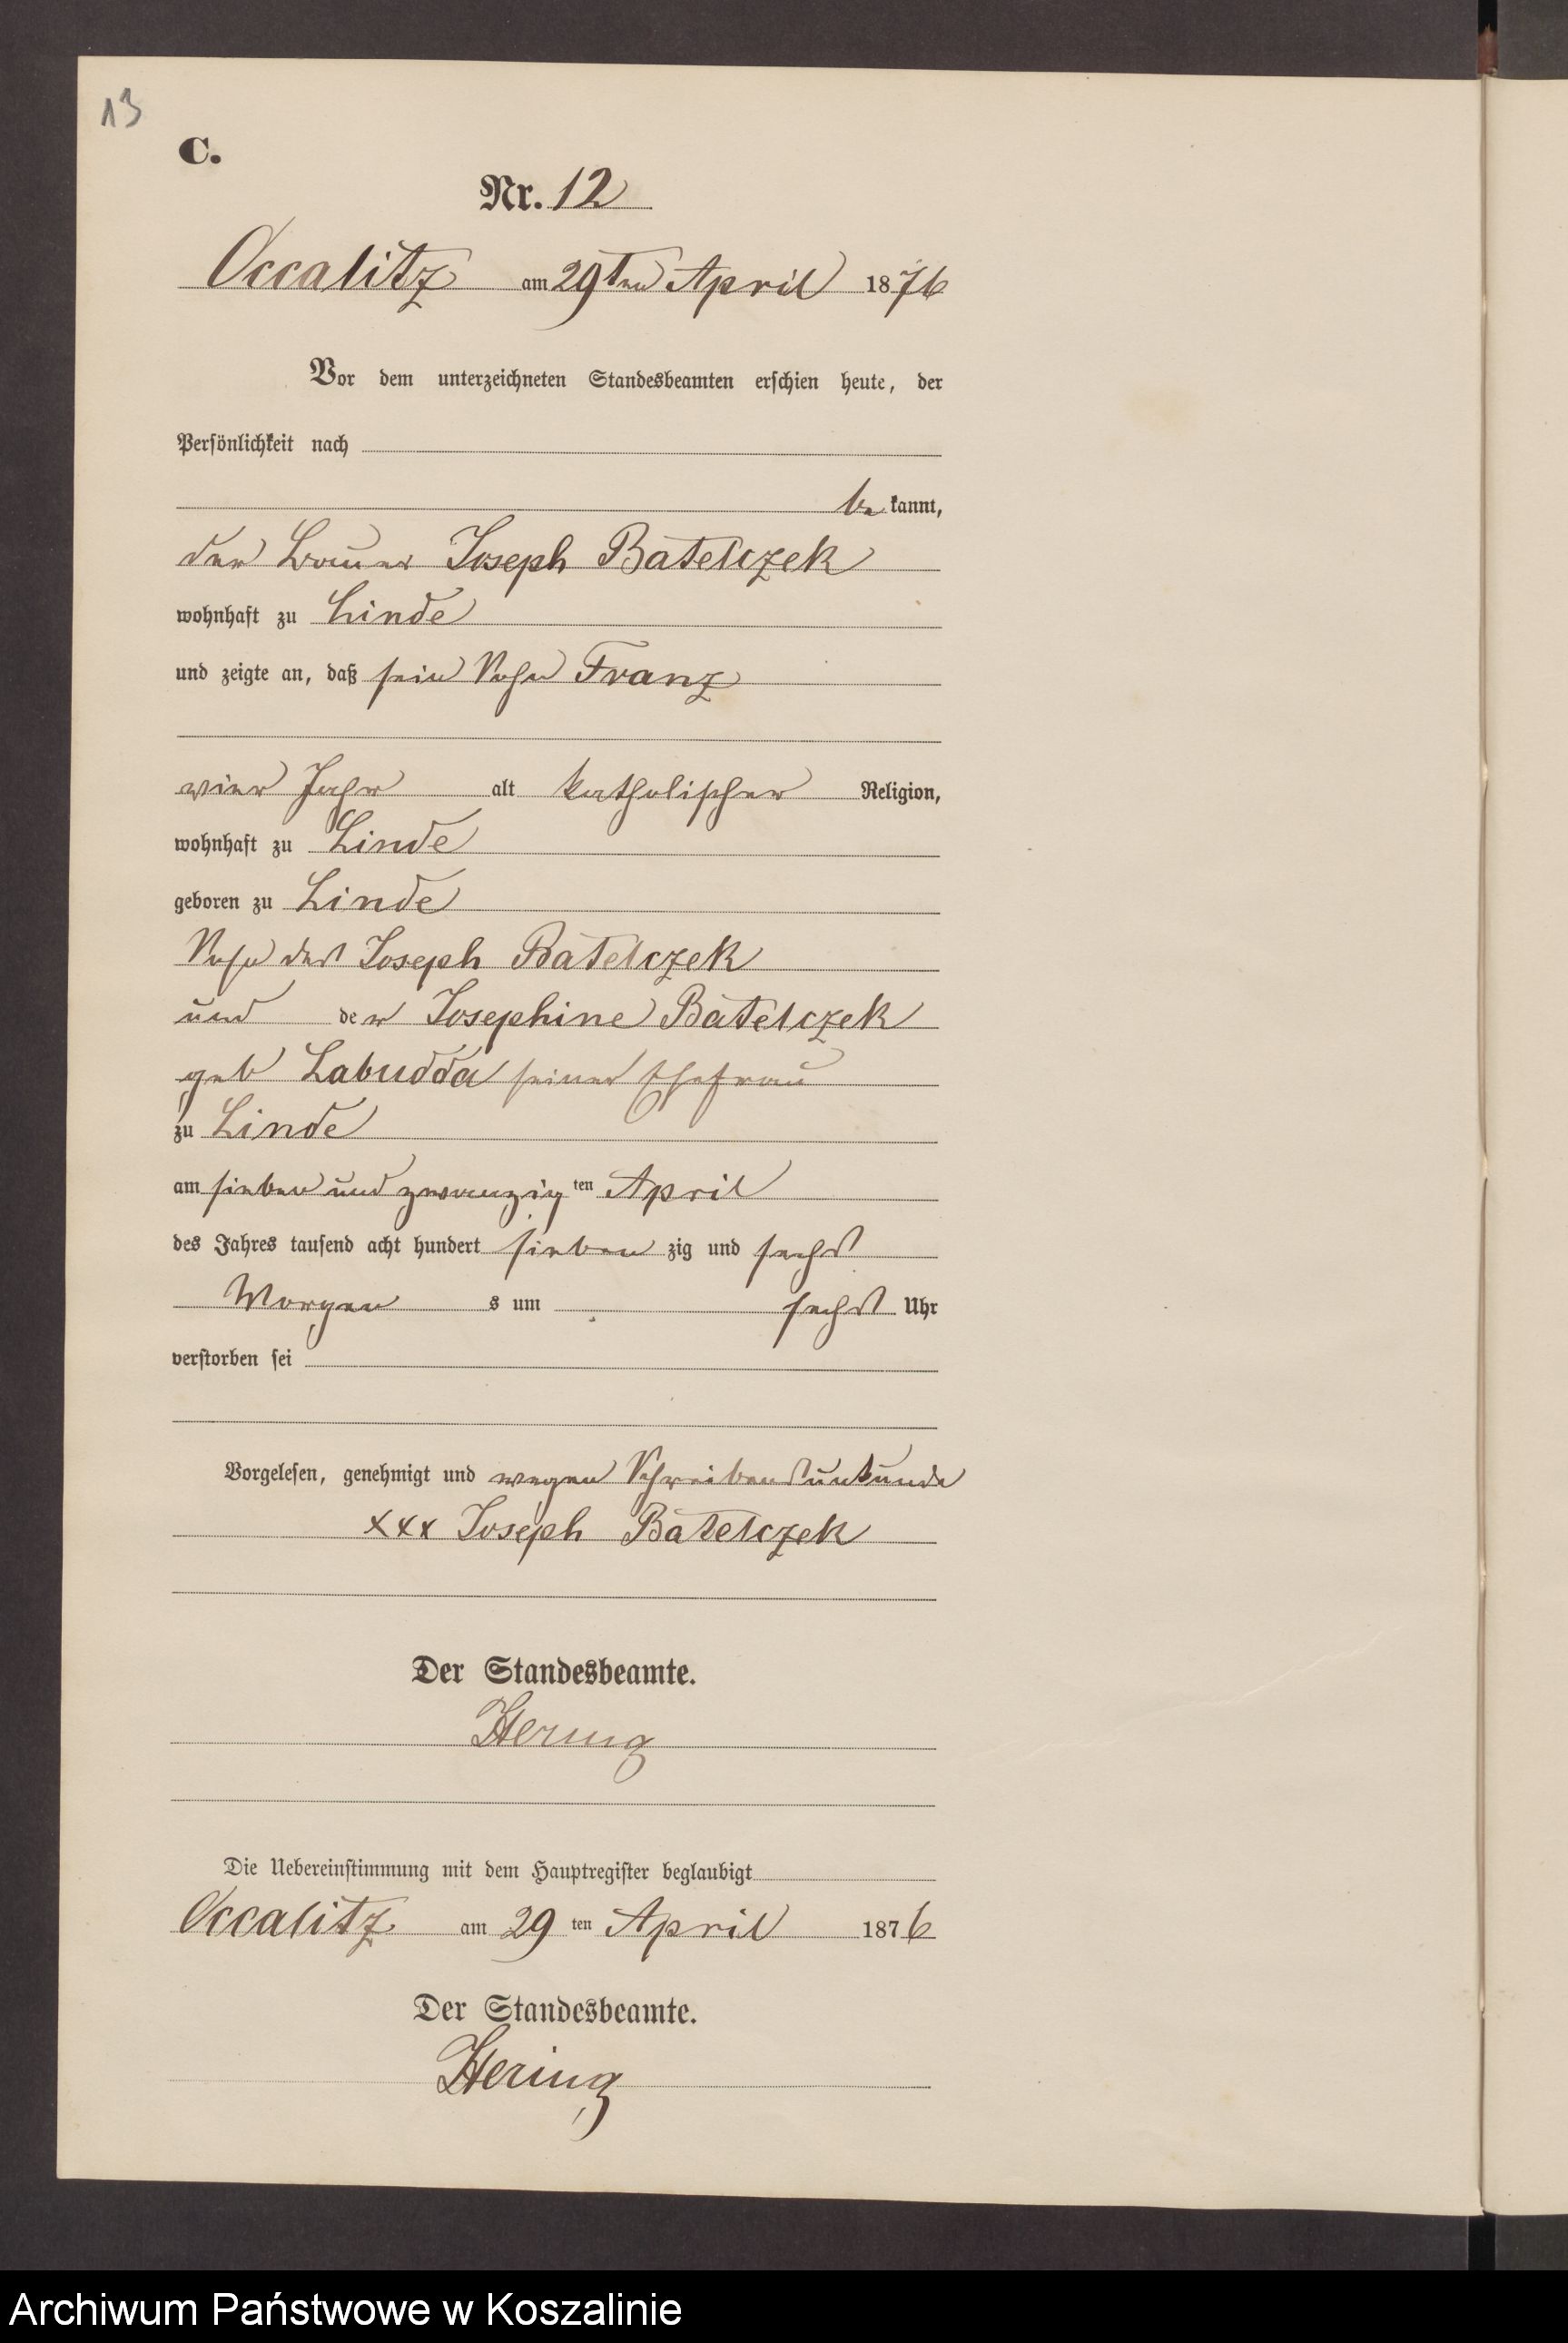 13
C.
Nr. 12
Occalitz am 29ten April 1876
Vor dem unterzeichneten Standesbeamten erschien heute, der
Persönlichkeit nach
bekannt,
der Bauer Joseph Batelczek
wohnhaft zu Linde
und zeigte an, daß sein Sohn Franz
vier Jahr alt katholischer Religion,
wohnhaft zu Linde
geboren zu Linde
Sohn des Joseph Batelczek
und der Josephine Batelczek
geb Labudda seiner Ehefrau
zu Linde
am sieben und zwanzigten April
des Jahres tausend acht hundert siebenzig und sechs
Morgens um sechs Uhr
verstorben sei
Vorgelesen, genehmigt und wegen Schreibensunkunde
xxx Joseph Batelczek
Der Standesbeamte.
Hering
Die Uebereinstimmung mit dem Hauptregister beglaubigt
Occalitz am 29ten April 1876
Der Standesbeamte.
Hering
Archiwum Państwowe w Koszalinie